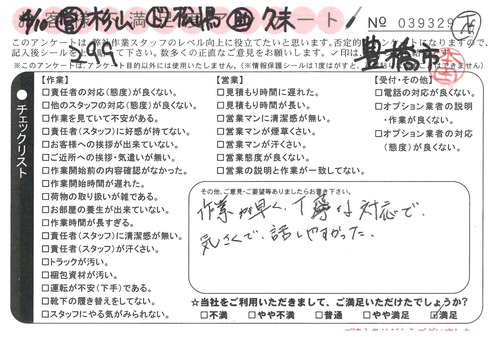 № 039329
豊橋市
このアンケートは
※このアンケートは、アンケート目的以外には使用いたしません。
チェックリスト
【作業】
□責任者の対応(態度)が良くない。
□他のスタッフの対応(態度)が良くない。
□作業を見ていて不安がある。
□責任者(スタッフ)に好感が持てない。
□お客様への挨拶が出来ていない。
□ご近所への挨拶・気遣いが無い。
□作業開始前の内容確認がなかった。
□作業開始時間が遅れた。
□荷物の取り扱いが雑である。
□お部屋の養生が出来ていない。
□作業時間が長すぎる。
□責任者(スタッフ)に清潔感が無い。
□責任者(スタッフ)が汗くさい。
□トラックが汚い。
□梱包資材が汚い。
□運転が不安(下手)である。
□靴下の履き替えをしてない。
□スタッフにやる気がみられない。
【営業】
□見積もり時間に遅れた。
□見積もり時間が長い。
□営業マンに清潔感が無い。
□営業マンが煙草くさい。
□営業マンが汗くさい。
□営業態度が良くない。
□営業の説明と作業が一致してない。
【受付・その他】
□電話の対応が良くない。
□オプション業者の説明
・作業が良くない。
□オプション業者の対応
(態度)が良くない。
その他、ご意見・ご要望等ありましたらお書き下さい。
作業が早く、丁寧な対応で、
気さくで、話しやすかった。
☆当社をご利用いただきまして、ご満足いただけたでしょうか?
□不満 □やや不満 □普通 □やや満足 ☑満足